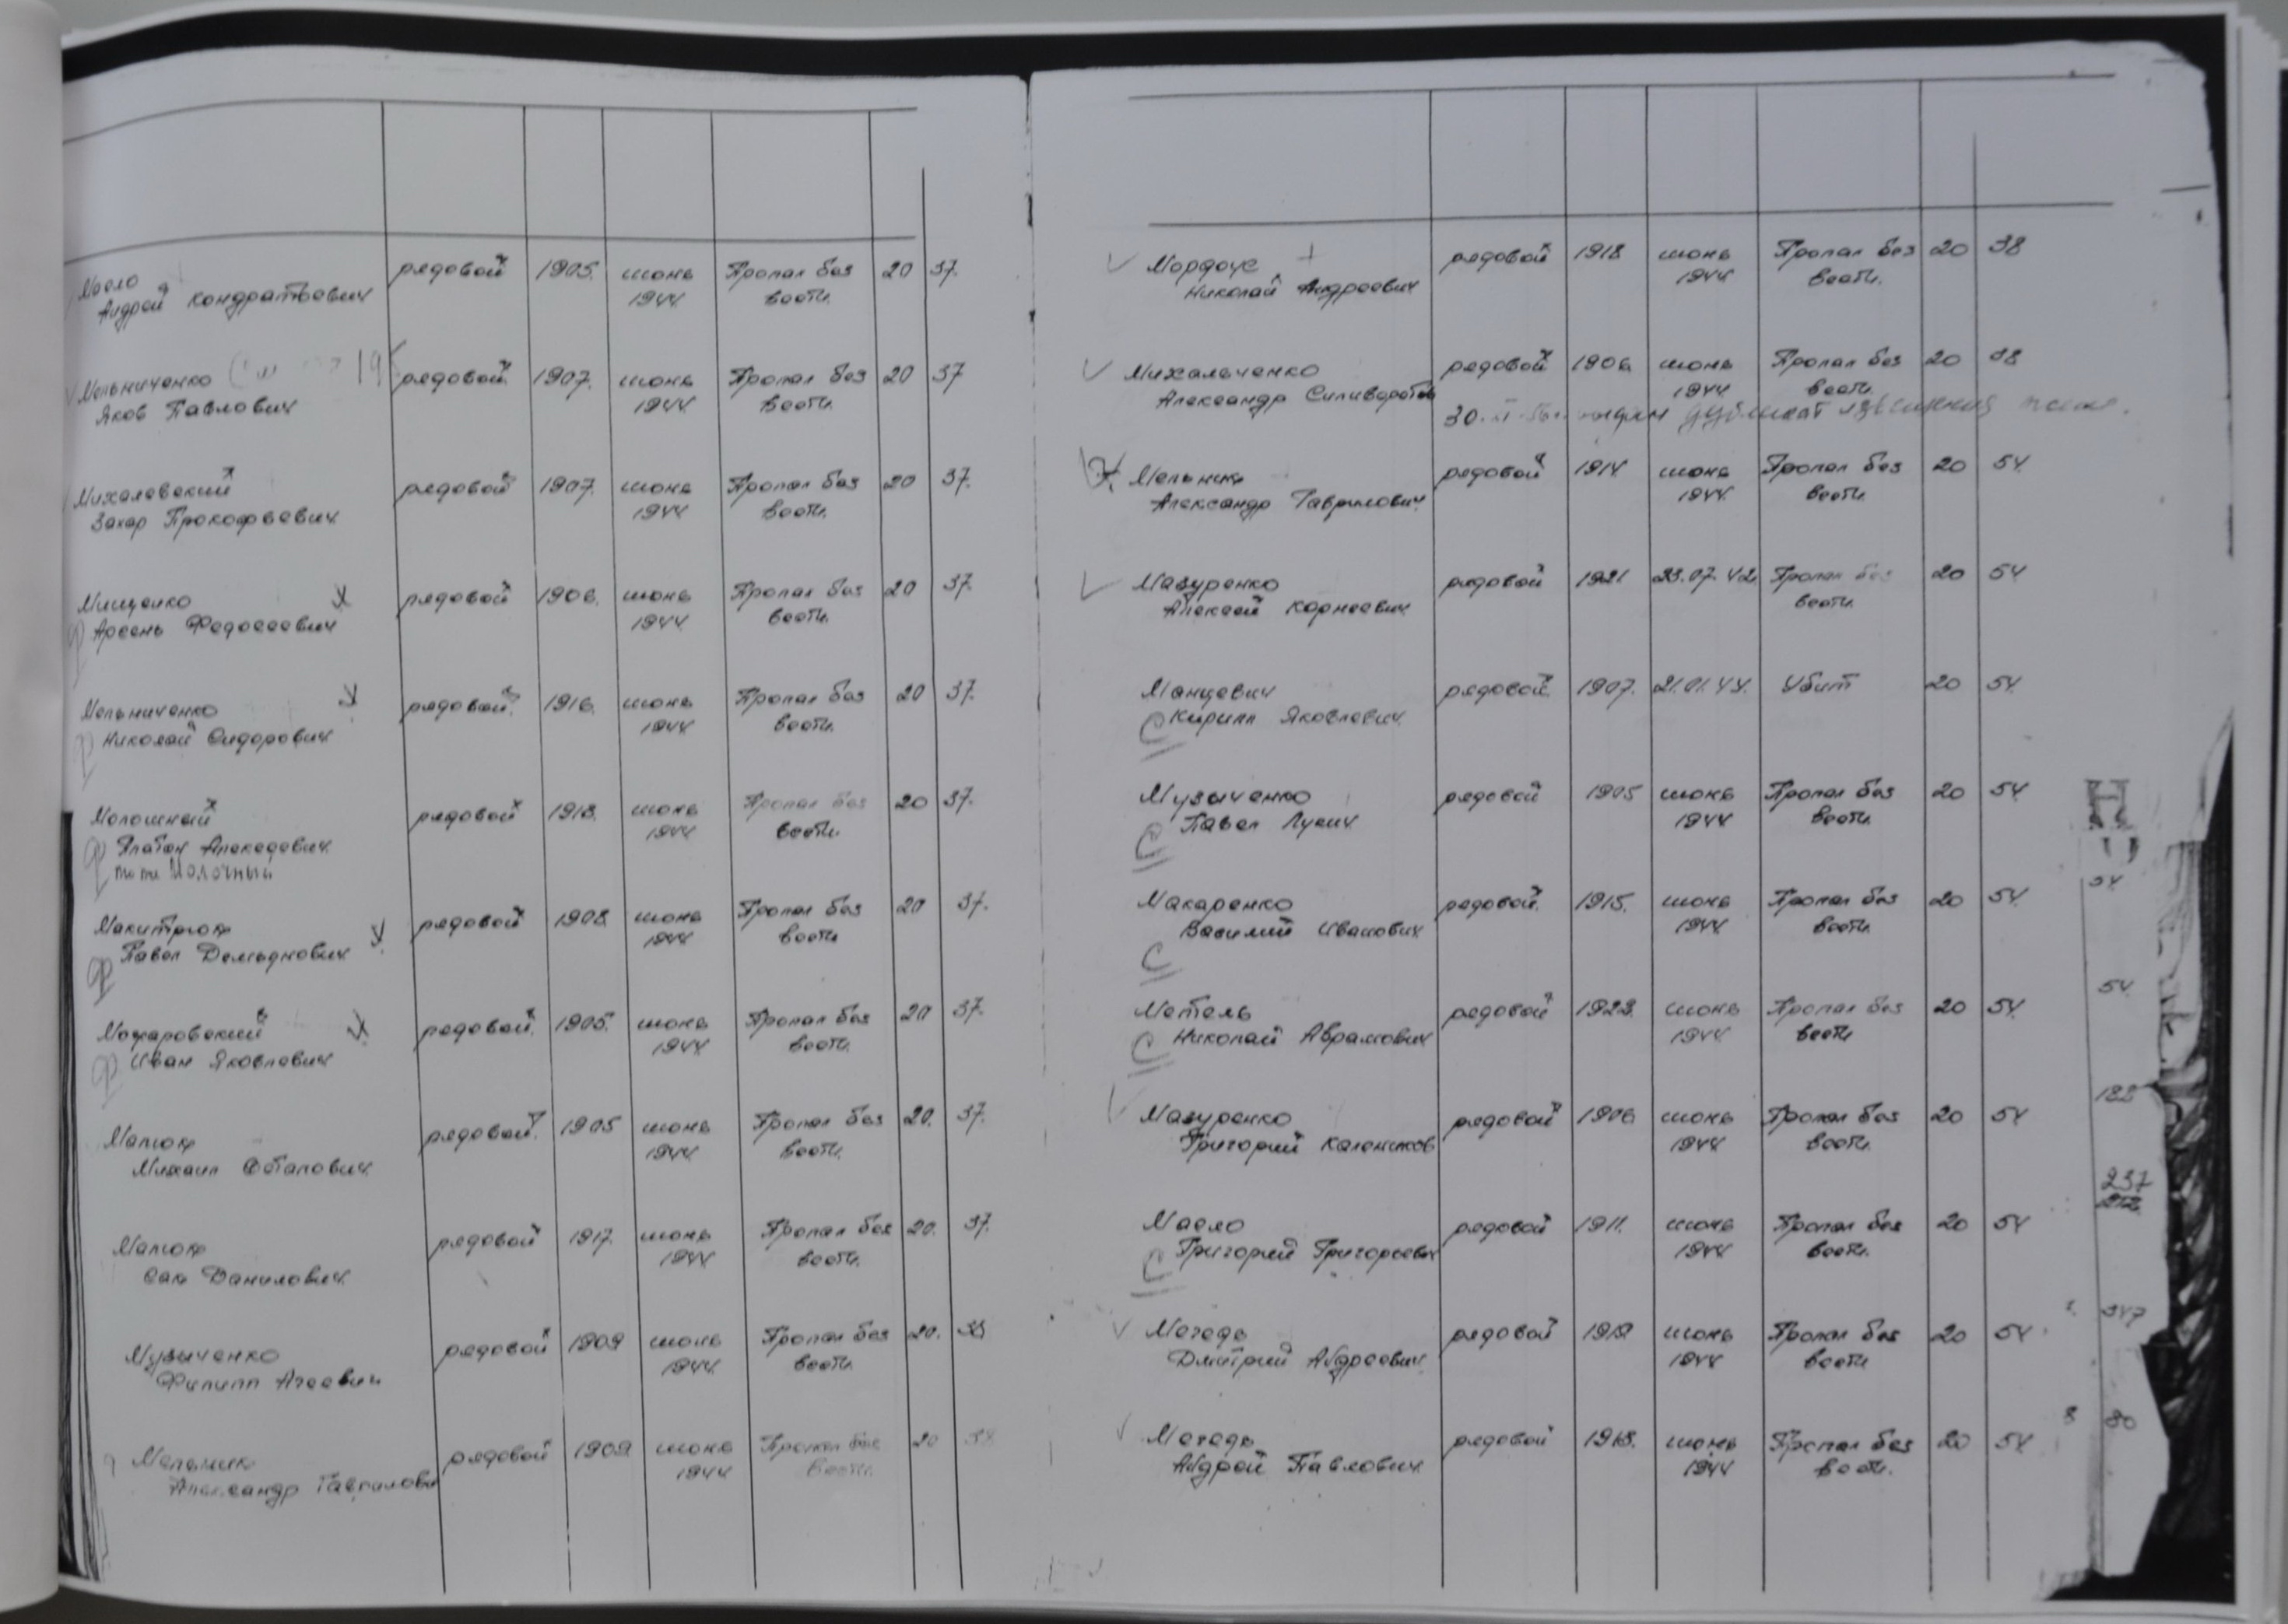 Масло рядовой 1905. июнь Пропал без 20 37.
Андрей Кондратьевич 1944 вести.
Мельниченко рядовой 1907. июнь Пропал без 20 37
Яков Павлович 1944 вести.
Михалевский рядовой 1907. июнь Пропал без 20 37.
Захар Прокофьевич 1944 вести.
Мищенко рядовой 1906. июнь Пропал без 20 37.
Арсень Федосеевич 1944 вести.
Мельниченко рядовой 1916. июнь Пропал без 20 37.
Николай Сидорович 1944 вести.
Молошный рядовой 1918. июнь Пропал без 20 37.
Платон Алексеевич 1944 вести.
Молочный
Макитрюк рядовой 1908 июнь Пропал без 20 37.
Павел Демьянович 1944 вести
Можаровский рядовой 1905. июнь Пропал без 20 37.
Иван Яковлевич 1944 вести.
Малюк рядовой 1905 июнь Пропал без 20. 37.
Михаил Остапович 1944 вести.
Малюк рядовой 1917. июнь Пропал без 20. 37.
Сак Данилович 1944 вести.
Музыченко рядовой 1909 июнь Пропал без 20. 38
Филипп Агеевич 1944 вести.
Мельник рядовой 1909 июнь Пропал без 20 38
Александр Гаврилови 1944 вести.
Мордоус рядовой 1918 июнь Пропал без 20 38
Николай Андреевич 1944 вести.
Михальченко рядовой 1906 июнь Пропал без 20 38
Александр Силиверстов 1944 вести.
30. дубликат извещения
Мельник рядовой 1914. июнь Пропал без 20 54.
Александр Гаврилович 1944 вести.
Мазуренко рядовой 1921 23.07.42 Пропал без 20 54
Алексей Корнеевич вести.
Манцевич рядовой 1907. 21.01.44. Убит 20 54.
С Кирилл Яковлевич
Музыченко рядовой 1905 июнь Пропал без 20 54
С Павел Лукич 1944 вести.
Н
Макаренко рядовой 1915. июнь Пропал без 20 54. 54
Василий Иванович 1944 вести.
С
Метель рядовой 1923. июнь Пропал без 20 54. 54
С Николай Абрамович 1944 вести
Мазуренко рядовой 1906 июнь Пропал без 20 54 188
Григорий Калеников 1944 вести.
237
Масло рядовой 1911. июнь Пропал без 20 54
С Григорий Григорьевич 1944 вести.
Мегедь рядовой 1919 июнь Пропал без 20 54. 347
Дмитрий Андреевич 1944 вести
Мегедь рядовой 1918. июнь Пропал без 20 54 8 80
Андрей Павлович 1944 вести.